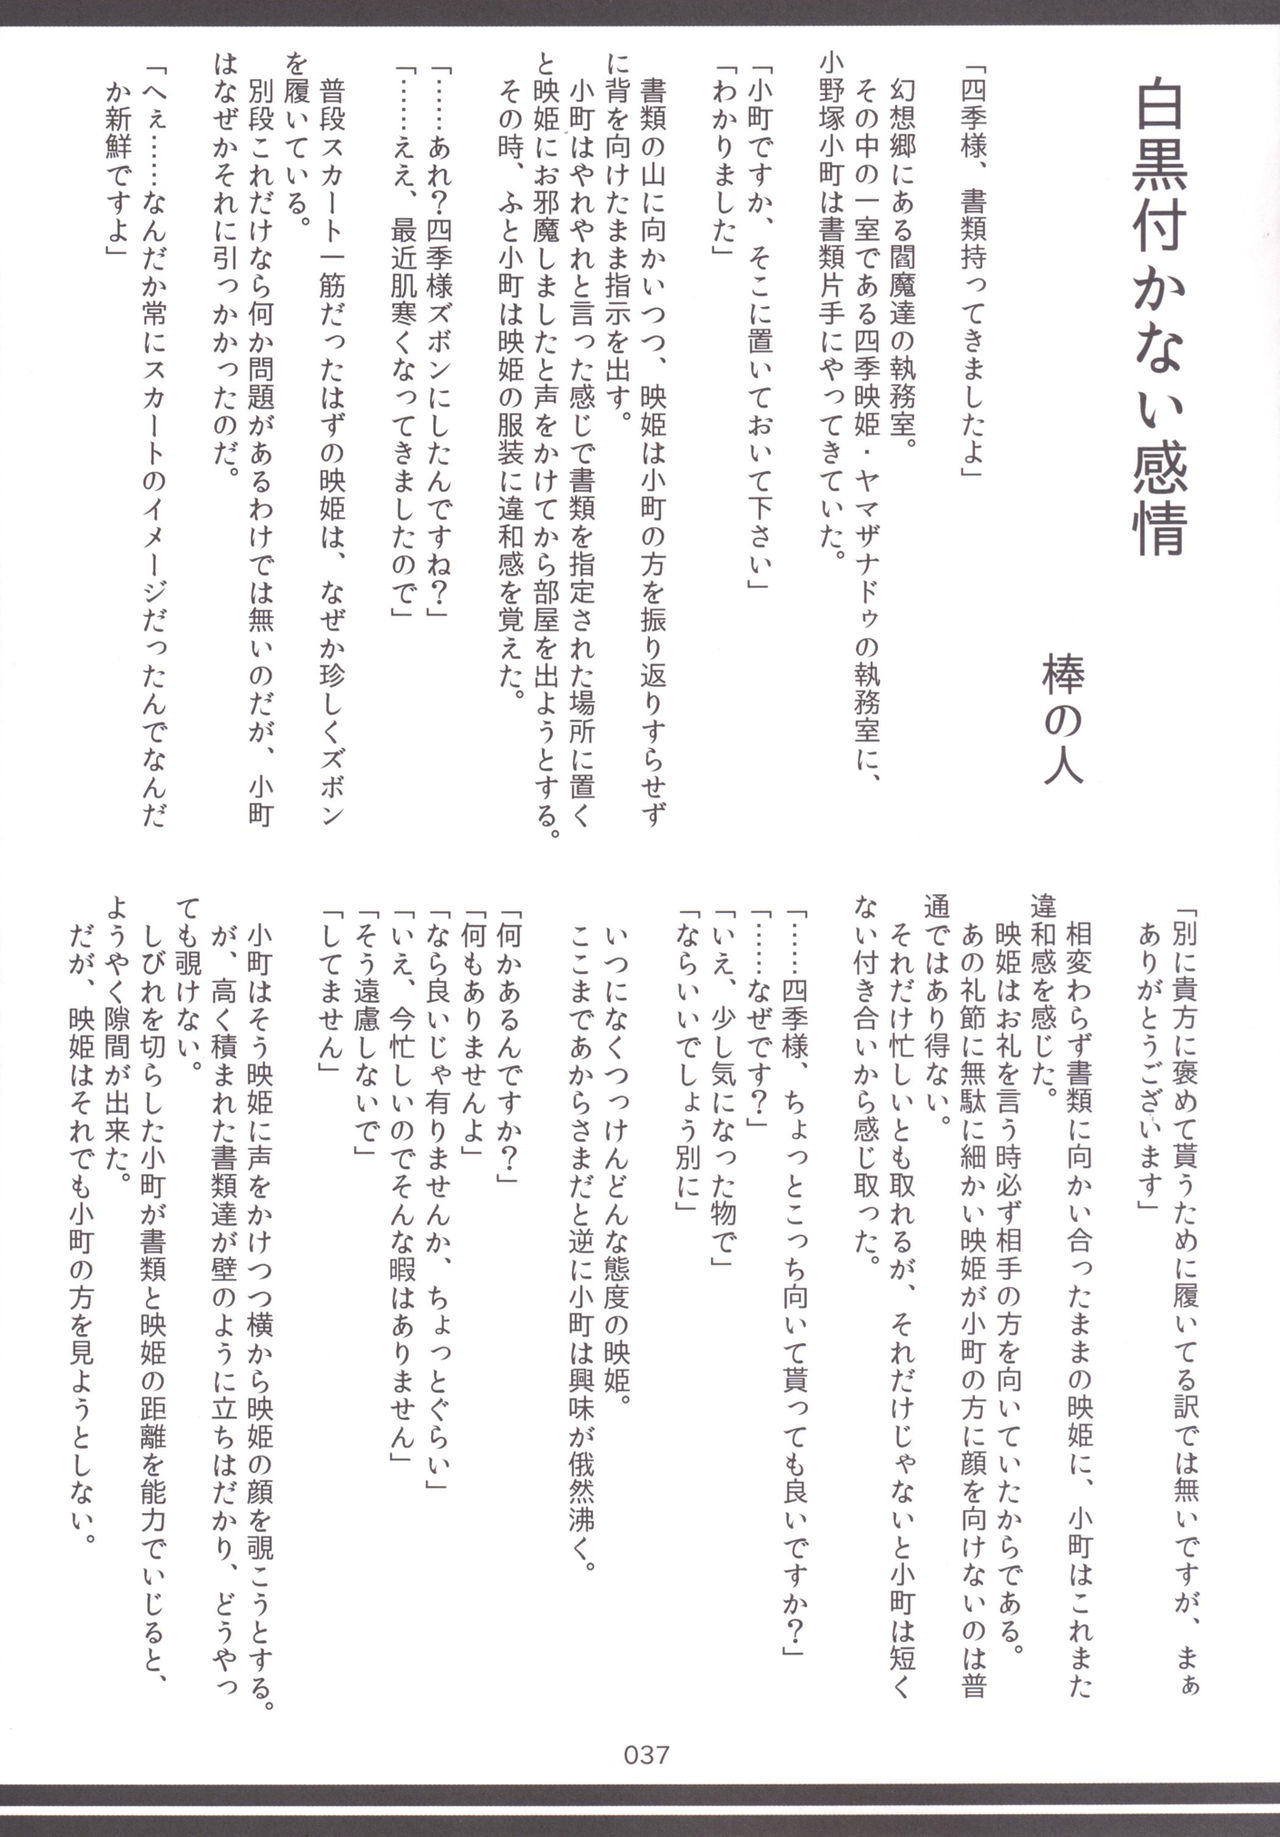 白黒付かない感情
棒の人
「四季様、書類持ってきましたよ」
幻想郷にある閻魔達の執務室。
その中の一室である四季映姫・ヤマザナドゥの執務室に、
小野塚小町は書類片手にやってきていた。
「小町ですか、そこに置いておいて下さい」
「わかりました」
書類の山に向かいつつ、映姫は小町の方を振り返りすらせず
に背を向けたまま指示を出す。
小町はやれやれと言った感じで書類を指定された場所に置く
と映姫にお邪魔しましたと声をかけてから部屋を出ようとする。
その時、ふと小町は映姫の服装に違和感を覚えた。
「……あれ？四季様ズボンにしたんですね？」
「……ええ、最近肌寒くなってきましたので」
普段スカート一筋だったはずの映姫は、なぜか珍しくズボン
を履いている。
別段これだけなら何か問題があるわけでは無いのだが、小町
はなぜかそれに引っかかったのだ。
「へぇ……なんだか常にスカートのイメージだったんでなんだ
か新鮮ですよ」
「別に貴方に褒めて貰うために履いてる訳では無いですが、まぁ
ありがとうございます」
相変わらず書類に向かい合ったままの映姫に、小町はこれまた
違和感を感じた。
映姫はお礼を言う時必ず相手の方を向いていたからである。
あの礼節に無駄に細かい映姫が小町の方に顔を向けないのは普
通ではあり得ない。
それだけ忙しいとも取れるが、それだけじゃないと小町は短く
ない付き合いから感じ取った。
「……四季様、ちょっとこっち向いて貰っても良いですか？」
「……なぜです？」
「いえ、少し気になった物で」
「ならいいでしょう別に」
いつになくつっけんどんな態度の映姫。
ここまであからさまだと逆に小町は興味が俄然沸く。
「何かあるんですか？」
「何もありませんよ」
「なら良いじゃ有りませんか、ちょっとぐらい」
「いえ、今忙しいのでそんな暇はありません」
「そう遠慮しないで」
「してません」
小町はそう映姫に声をかけつつ横から映姫の顔を覗こうとする。
が、高く積まれた書類達が壁のように立ちはだかり、どうやっ
ても覗けない。
しびれを切らした小町が書類と映姫の距離を能力でいじると、
ようやく隙間が出来た。
だが、映姫はそれでも小町の方を見ようとしない。
037